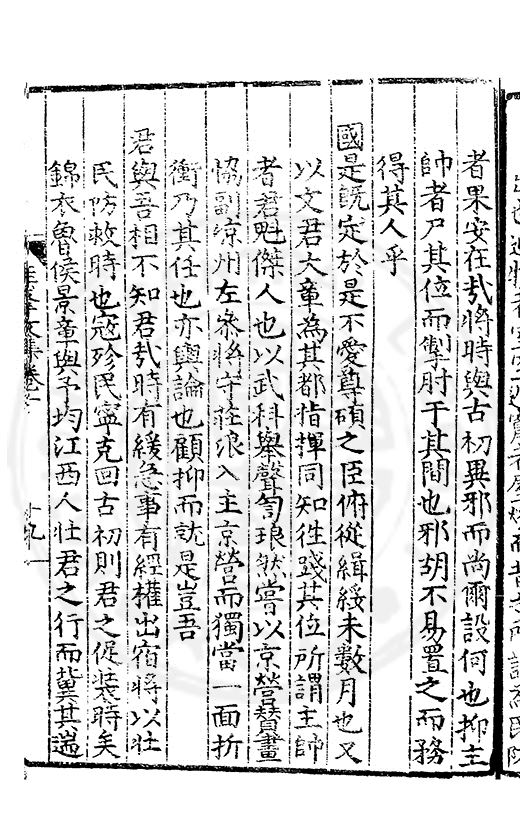 者果安在哉將時與古初異邪而尚爾設何也抑主
帥者尸其位而掣肘干其間也邪胡不易置之而務
得其人乎
國是既定於是不愛尊碩之臣俯從緝綏未數月也又
以文君大章為其都指揮同知徃踐其位所謂主帥
者君魁傑人也以武科舉聲訇琅然嘗以京營贊畫
協副凉州左叅將守莊浪入主京營而獨當一面折
衝乃其任也亦輿論也顧抑而就是豈吾
君與吾相不知君哉時有緩急事有經權出宿將以壯
民防救時也寇殄民寧克回古初則君之促裝時矣
錦衣魯侯景章與予均江西人壯君之行而冀其遄
文集卷
十九